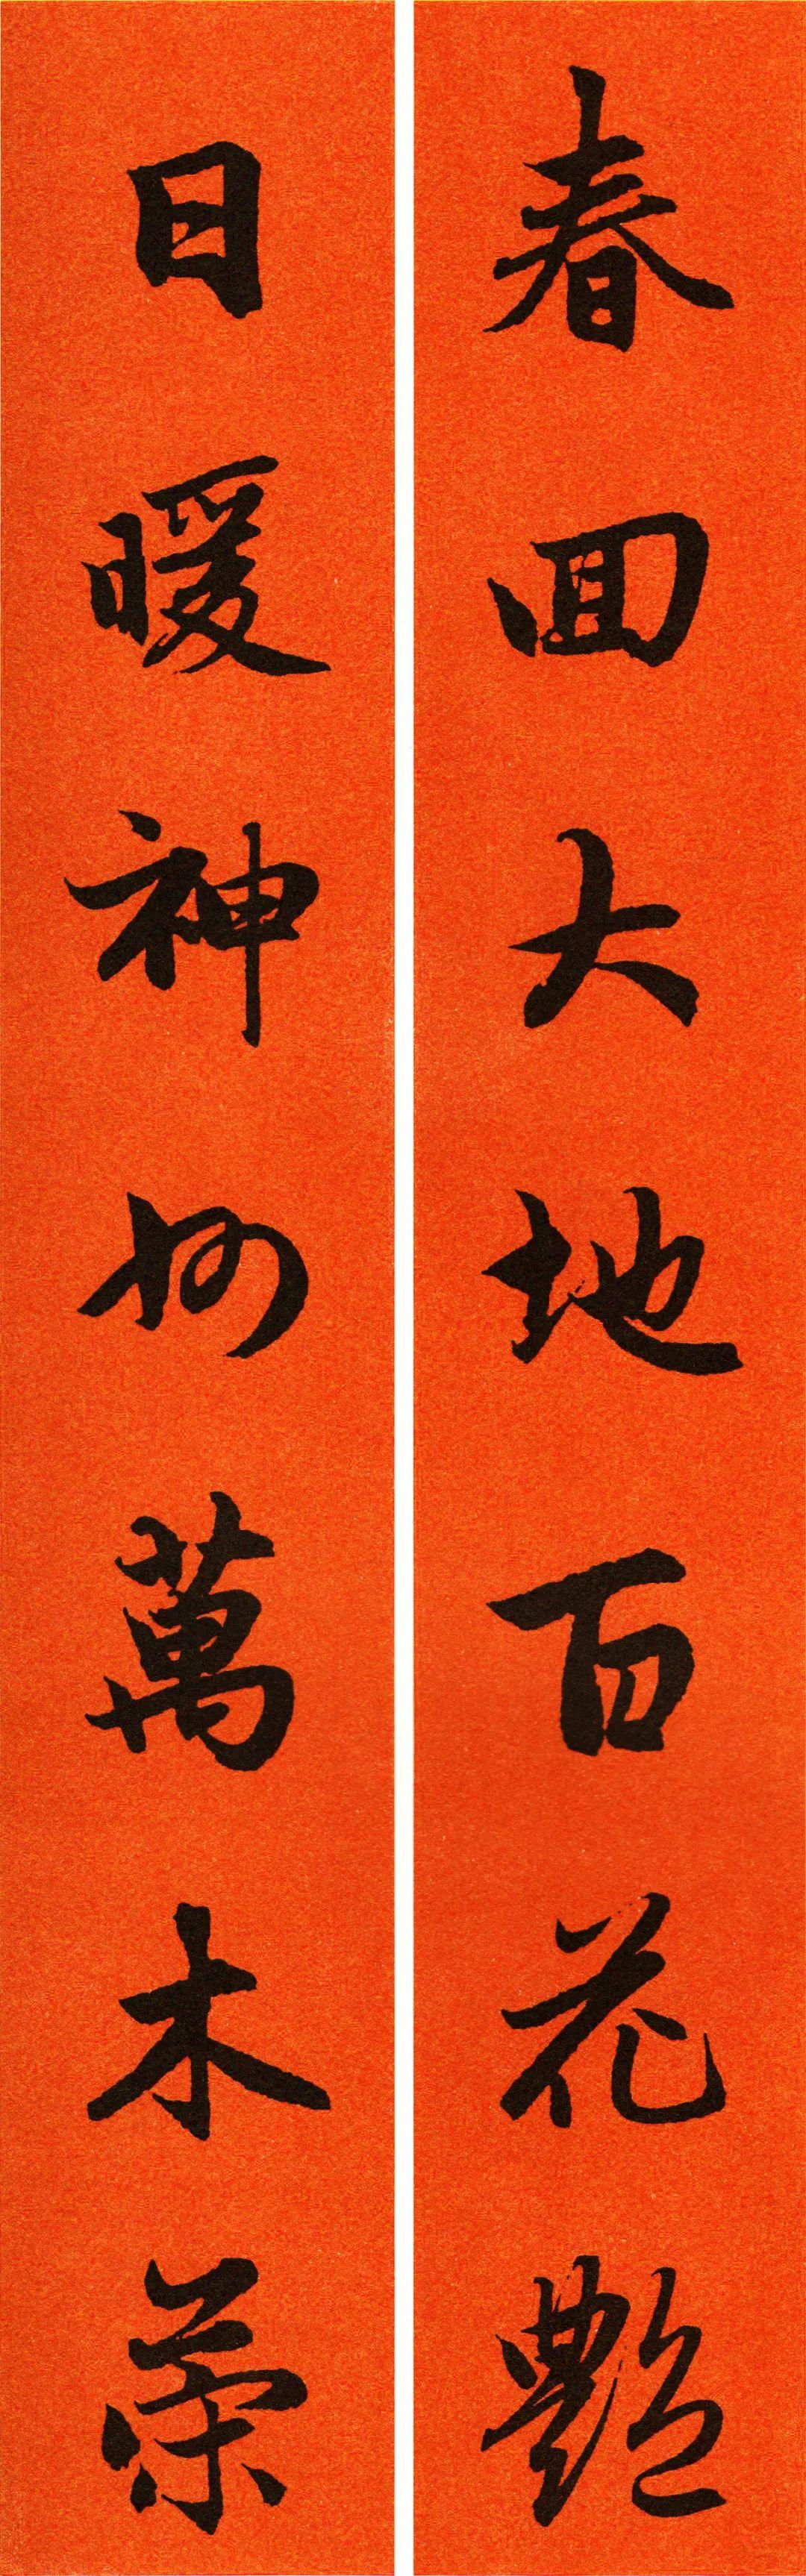 春回大地百花艷
日暖神州萬木榮